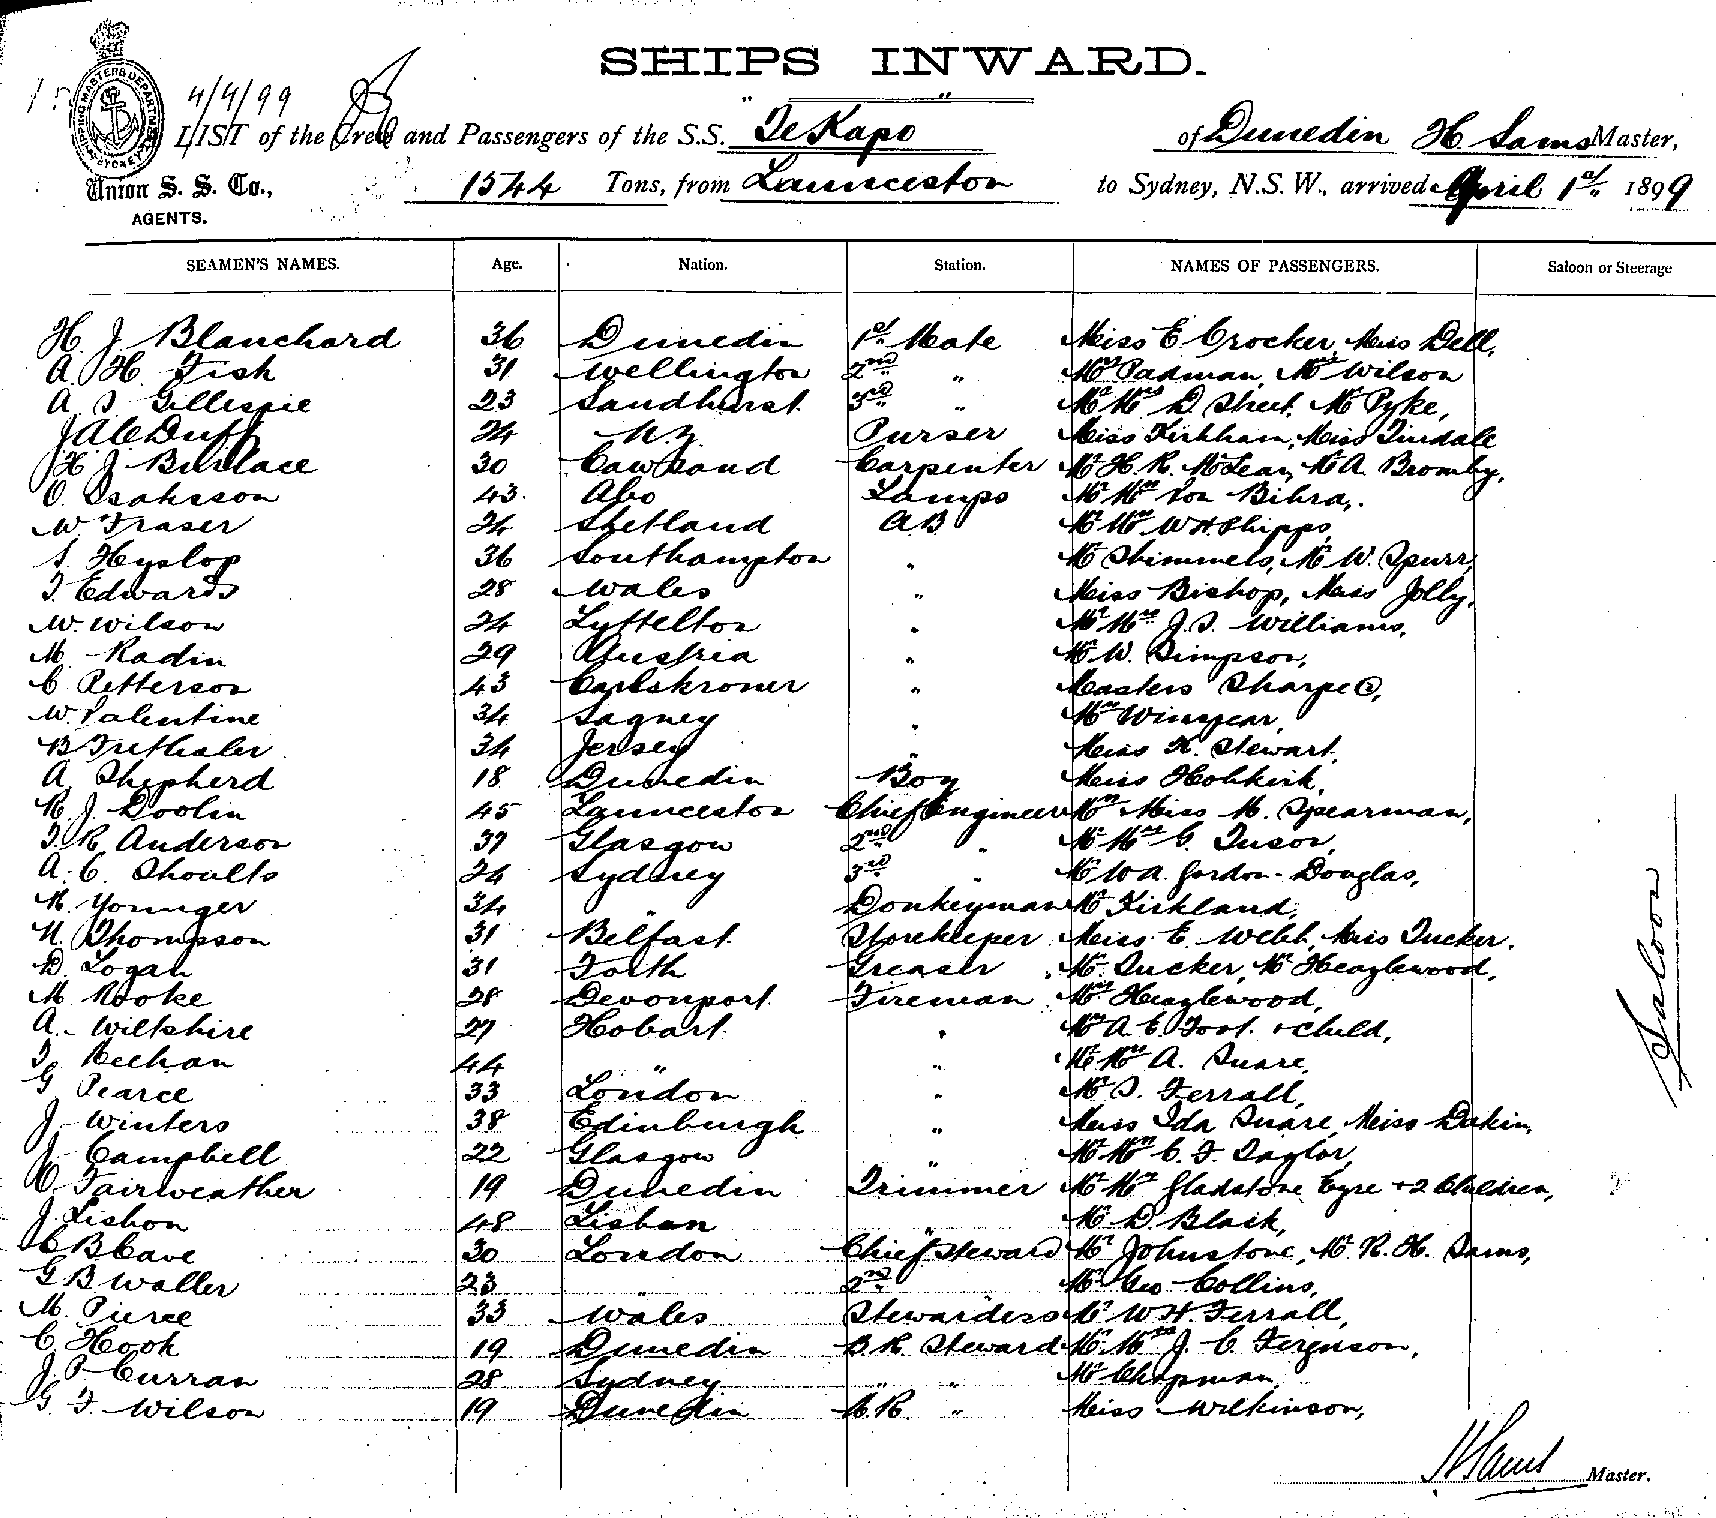 SHIPS INWARD.
4/4/99
LIST of the Crew and Passengers of the S.S. TeKapo of Dunedin H. Sams Master,
Union S. S. Co., 1544 Tons, from Launceston to Sydney, N.S.W., arrived April 1st 1899
AGENTS.
SEAMEN'S NAMES. Age. Nation. Station. NAMES OF PASSENGERS. Saloon or Steerage
H. J. Blanchard 36 Dunedin 1st Mate Miss E Crocker, Miss Dell,
A. H. Fish 31 Wellington 2nd " Mrs Padman, Mrs Wilson
A. J. Gillespie 23 Sandhurst 3rd " Mr Mrs D. Street, Mr Pyke,
J A C Duff 24 N.Z. Purser Miss Kirkham, Miss Tindale
H. J. Burlace 30 Cawsand Carpenter Mr H. R. McLean, Mr A. Bromby,
O. Isaksson 43 Abo Lamps Mr Mrs Von Bibra,
W. Fraser 24 Shetland AB Mr Mrs W H Phipps,
S. Hyslop 36 Southampton " Mr Shimmels, Mr W. Spurr,
T. Edwards 28 Wales " Miss Bishop, Miss Jolly,
W. Wilson 24 Lyttelton " Mr Mrs J. T. Williams,
M. Radin 29 Austria " Mr W. Simpson,
C Petterson 43 Carlskroner " Masters Sharpe (2),
W. Valentine 34 Sagney " Mrs Winspear,
B 34 Jersey " Miss H. Stewart,
A. Shepherd 18 Dunedin Boy Miss Hobkirk,
R. J. Doolin 45 Launceston Chief Engineer Mrs Miss M. Spearman,
T. R. Anderson 37 Glasgow 2nd " Mr Mrs G. Tuson,
A. C. Shoults 24 Sydney 3rd " Mr W A. Gordon-Douglas,
R. Younger 34 " Donkeyman Mr Kirkland,
N. Thompson 31 Belfast Storekeeper Miss E. Webb, Miss Tucker,
D. Logan 31 Forth Greaser Mr Tucker, Mr Heazlewood,
M. Rooke 28 Devonport Fireman Mrs Heazlewood,
A. Wiltshire 27 Hobart " Mrs A. E. Foot + child,
T. Meehan 44 " " Mr Mrs A. Suare,
G Pearce 33 London " Mr T. Ferrall,
J. Winters 38 Edinburgh " Miss Ida Suare, Miss Dakin,
J. Campbell 22 Glasgow " Mr Mrs C. F. Taylor,
C Fairweather 19 Dunedin Trimmer Mr Mrs Gladstone Eyre + 2 Children,
J. Lisbon 48 Lisbon " Mr D. Black,
C B Cave 30 London Chief Steward Mr Johnstone, Mr R. H. Sams,
G B Waller 23 " 2nd " Mr Geo Collins,
M. Pierce 33 Wales Stewardess Mr W H. Ferrall,
C Hook 19 Dunedin B.R. Steward Mr. Mrs J. C. Ferguson,
J. P. Curran 28 Sydney " " Mr Chapman,
G. F. Wilson 19 Dunedin M.R. " Miss Wilkinson,
Saloon
H Sams Master.